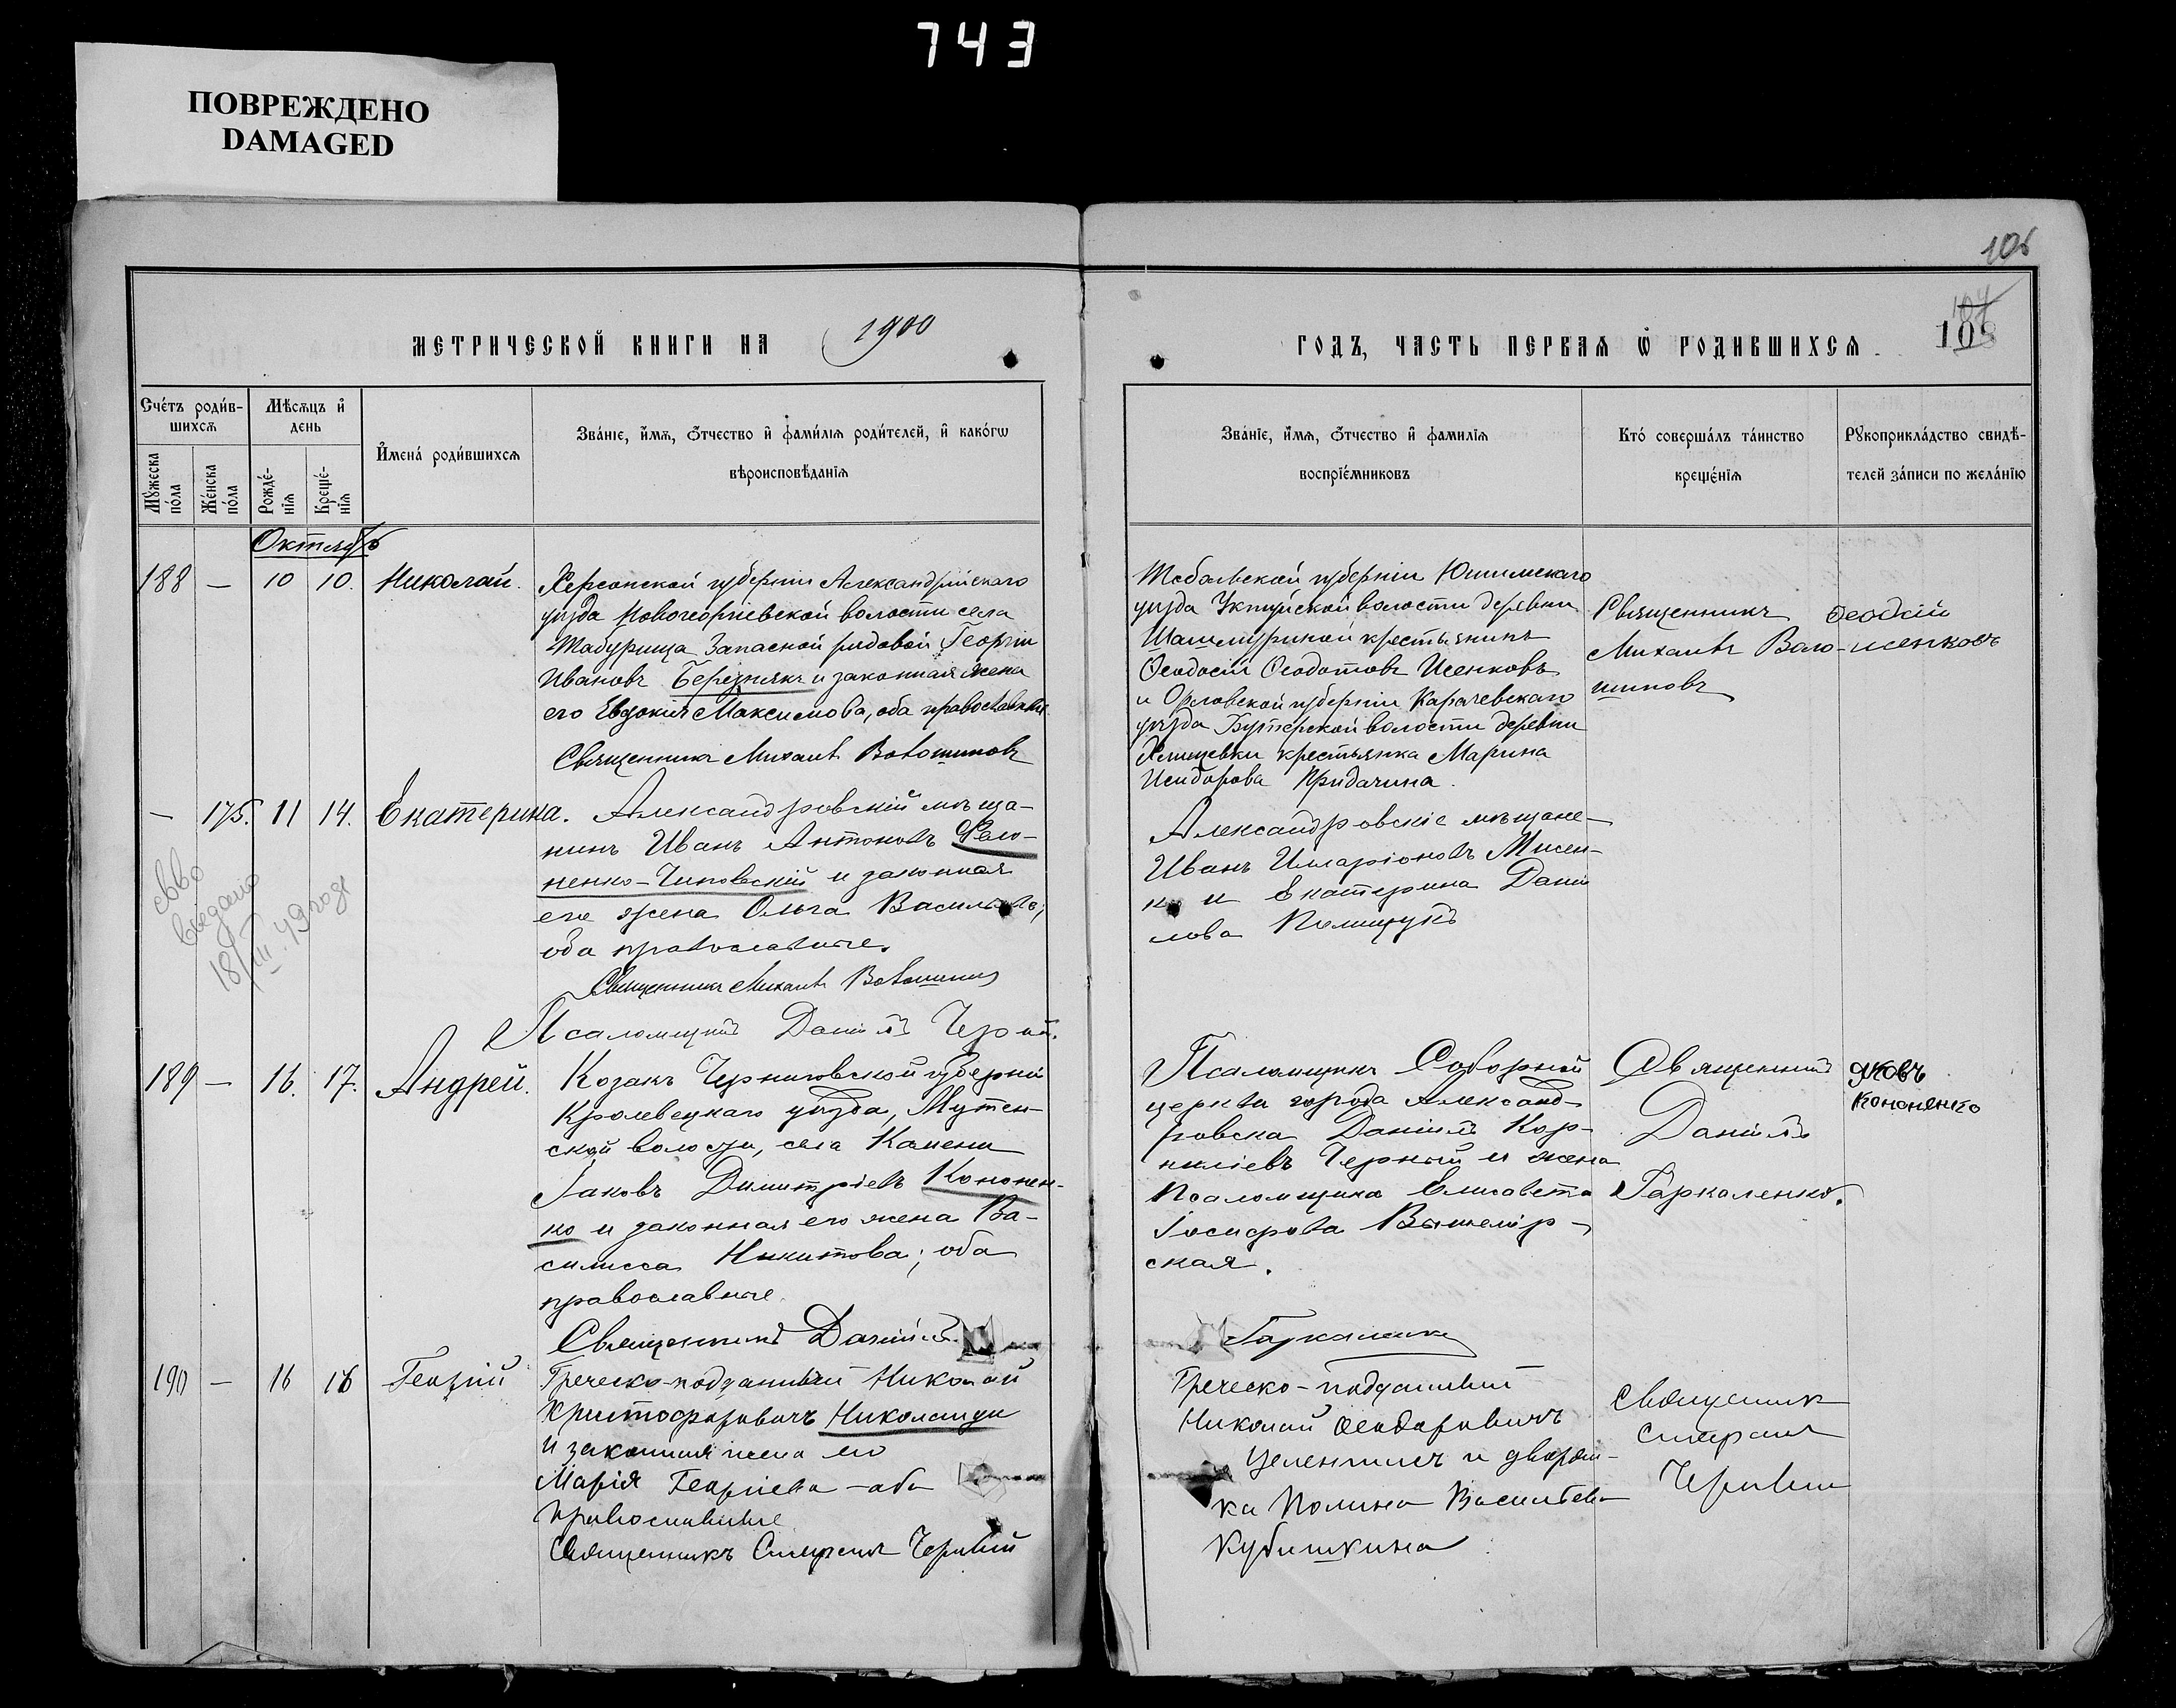 743
ПОВРЕЖДЕНО
DAMAGED
106
104
108
МЕТРИЧЕСКОЙ КНИГИ НА 1900
ГОДЪ, ЧАСТЬ ПЕРВАЯ Ѡ РОДИВШИХСЯ.
Счétъ роди́в-
шихсѧ
Мѣ́сѧцъ и҆
день
Му́жеска
по́ла
Же́нска
по́ла
Рожде́-
нїѧ
Креще́-
нїѧ
И҆мена̀ роди́вшихсѧ
Зва́нїе, и҆́мѧ, ѻ҆́тчество и҆ фами́лїѧ роди́телей, и҆ како́гѡ
вѣроисповѣ́данїѧ
Зва́нїе, и҆́мѧ, ѻ҆́тчество и҆ фами́лїѧ
воспрїе́мниковъ
Кто̀ соверша́лъ та́инство
креще́нїѧ
Рꙋкоприкла́дство свидѣ́-
телей за́писи по жела́нїю
Октябрь
188 — 10 10. Николай.
Херсонской губерніи Александрійскаго
уѣзда Новогеоргіевской волости села
Табурища Запасной рядовой Георгій
Ивановъ Березнякъ и законная жена
его Евдокія Максимова, оба православные
Священникъ Михаилъ Волошиновъ
Тобольской губерніи Ишимскаго
уѣзда волости деревни
крестьянинъ
Ѳеодосій Ѳеодотовъ Исенковъ
и Орловской губерніи Карачевскаго
уѣзда волости деревни
крестьянка Марина
Исидорова Придачина.
Священникъ
Михаилъ Воло-
шиновъ
Исенковъ
— 175. 11 14. Екатерина.
Александровскій мѣща-
нинъ Иванъ Антоновъ
и законная
его жена Ольга Васильева;
оба православные.
Священникъ Михаилъ Волошиновъ
Псаломщикъ Даніилъ Черный.
Александровскіе мѣщане
Иванъ Илларіоновъ Мисен-
ко и Екатерина Дани-
лова Полищукъ
18/III.49 года
189 — 16. 17. Андрей.
Козакъ Черниговской губерніи
Кролевецкаго уѣзда, Мутен-
ской волости, села Камени
Іаковъ Димитріевъ Кононен-
ко и законная его жена Ва-
силисса Никитова; оба
православные.
Священникъ Даніилъ
Гаркаленко
Псаломщикъ Соборной
церкви города Александ-
ровска Даніилъ Кор-
ниліевъ Черный и жена
Псаломщика Елисавета
Іосифова Вышемір-
ская.
Священникъ
Даніилъ
Гаркаленко.
Яковъ
Кононенко
190 — 16 16 Георгій
Греческо-подданный Николай
Христофоровичъ Николаиди
и законная жена его
Марія Георгіева — оба
православные
Священникъ Симеонъ Черный
Греческо-подданный
Николай Ѳеодоровичъ
и дворян-
ка Полина Васильева
Кубышкина
Священникъ
Симеонъ
Черный